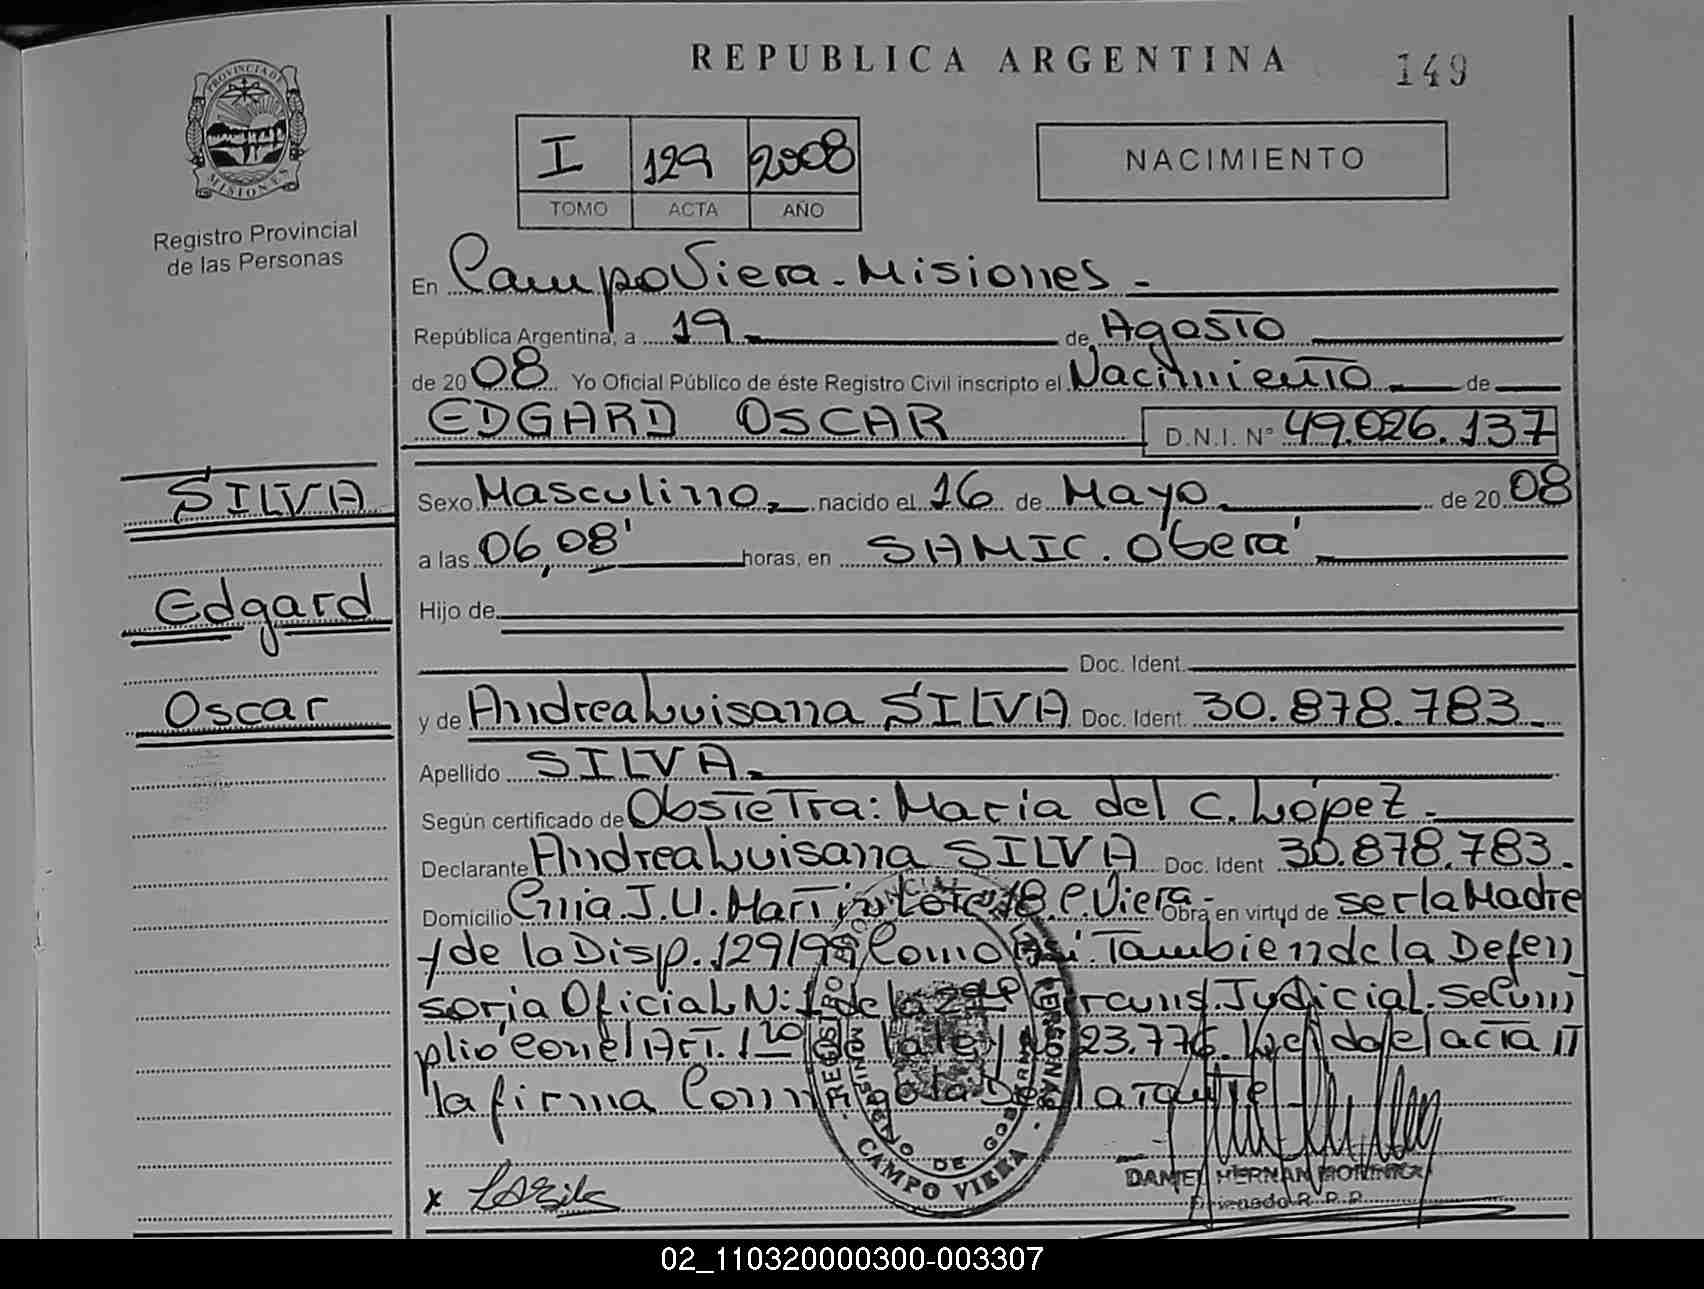 REPUBLICA ARGENTINA 149
PROVINCIA DE MISIONES
Registro Provincial
de las Personas
I 129 2008
TOMO ACTA AÑO
NACIMIENTO
En Campo Viera - Misiones -
República Argentina, a 19 de Agosto
de 2008 Yo Oficial Público de éste Registro Civil inscripto el Nacimiento de
EDGARD OSCAR D.N.I. N° 49.026.137
SILVA
Edgard
Oscar
Sexo Masculino nacido el 16 de Mayo de 2008
a las 06,08' horas, en SAMIC. Oberá
Hijo de
Doc. Ident.
y de Andrea Luisana SILVA Doc. Ident. 30.878.783
Apellido SILVA
Según certificado de Obstetra: María del C. López
Declarante Andrea Luisana SILVA Doc. Ident 30.878.783
Domicilio Cnia. J.U. Martin Lote 18. C. Viera - Obra en virtud de ser la Madre
y de la Disp. 129/99 Como Así Tambien de la Defen
soria Oficial N: 1 de la Circuns. Judicial. Se Cum
plió con el Art. 1 de la ley 23.776. Leida el acta
la firma Conmigo la Declarante
REGISTRO PERSONAS
MINISTERIO DE GOBIERNO
CAMPO VIERA
x
DANIEL HERNAN
R. P. P.
02_110320000300-003307